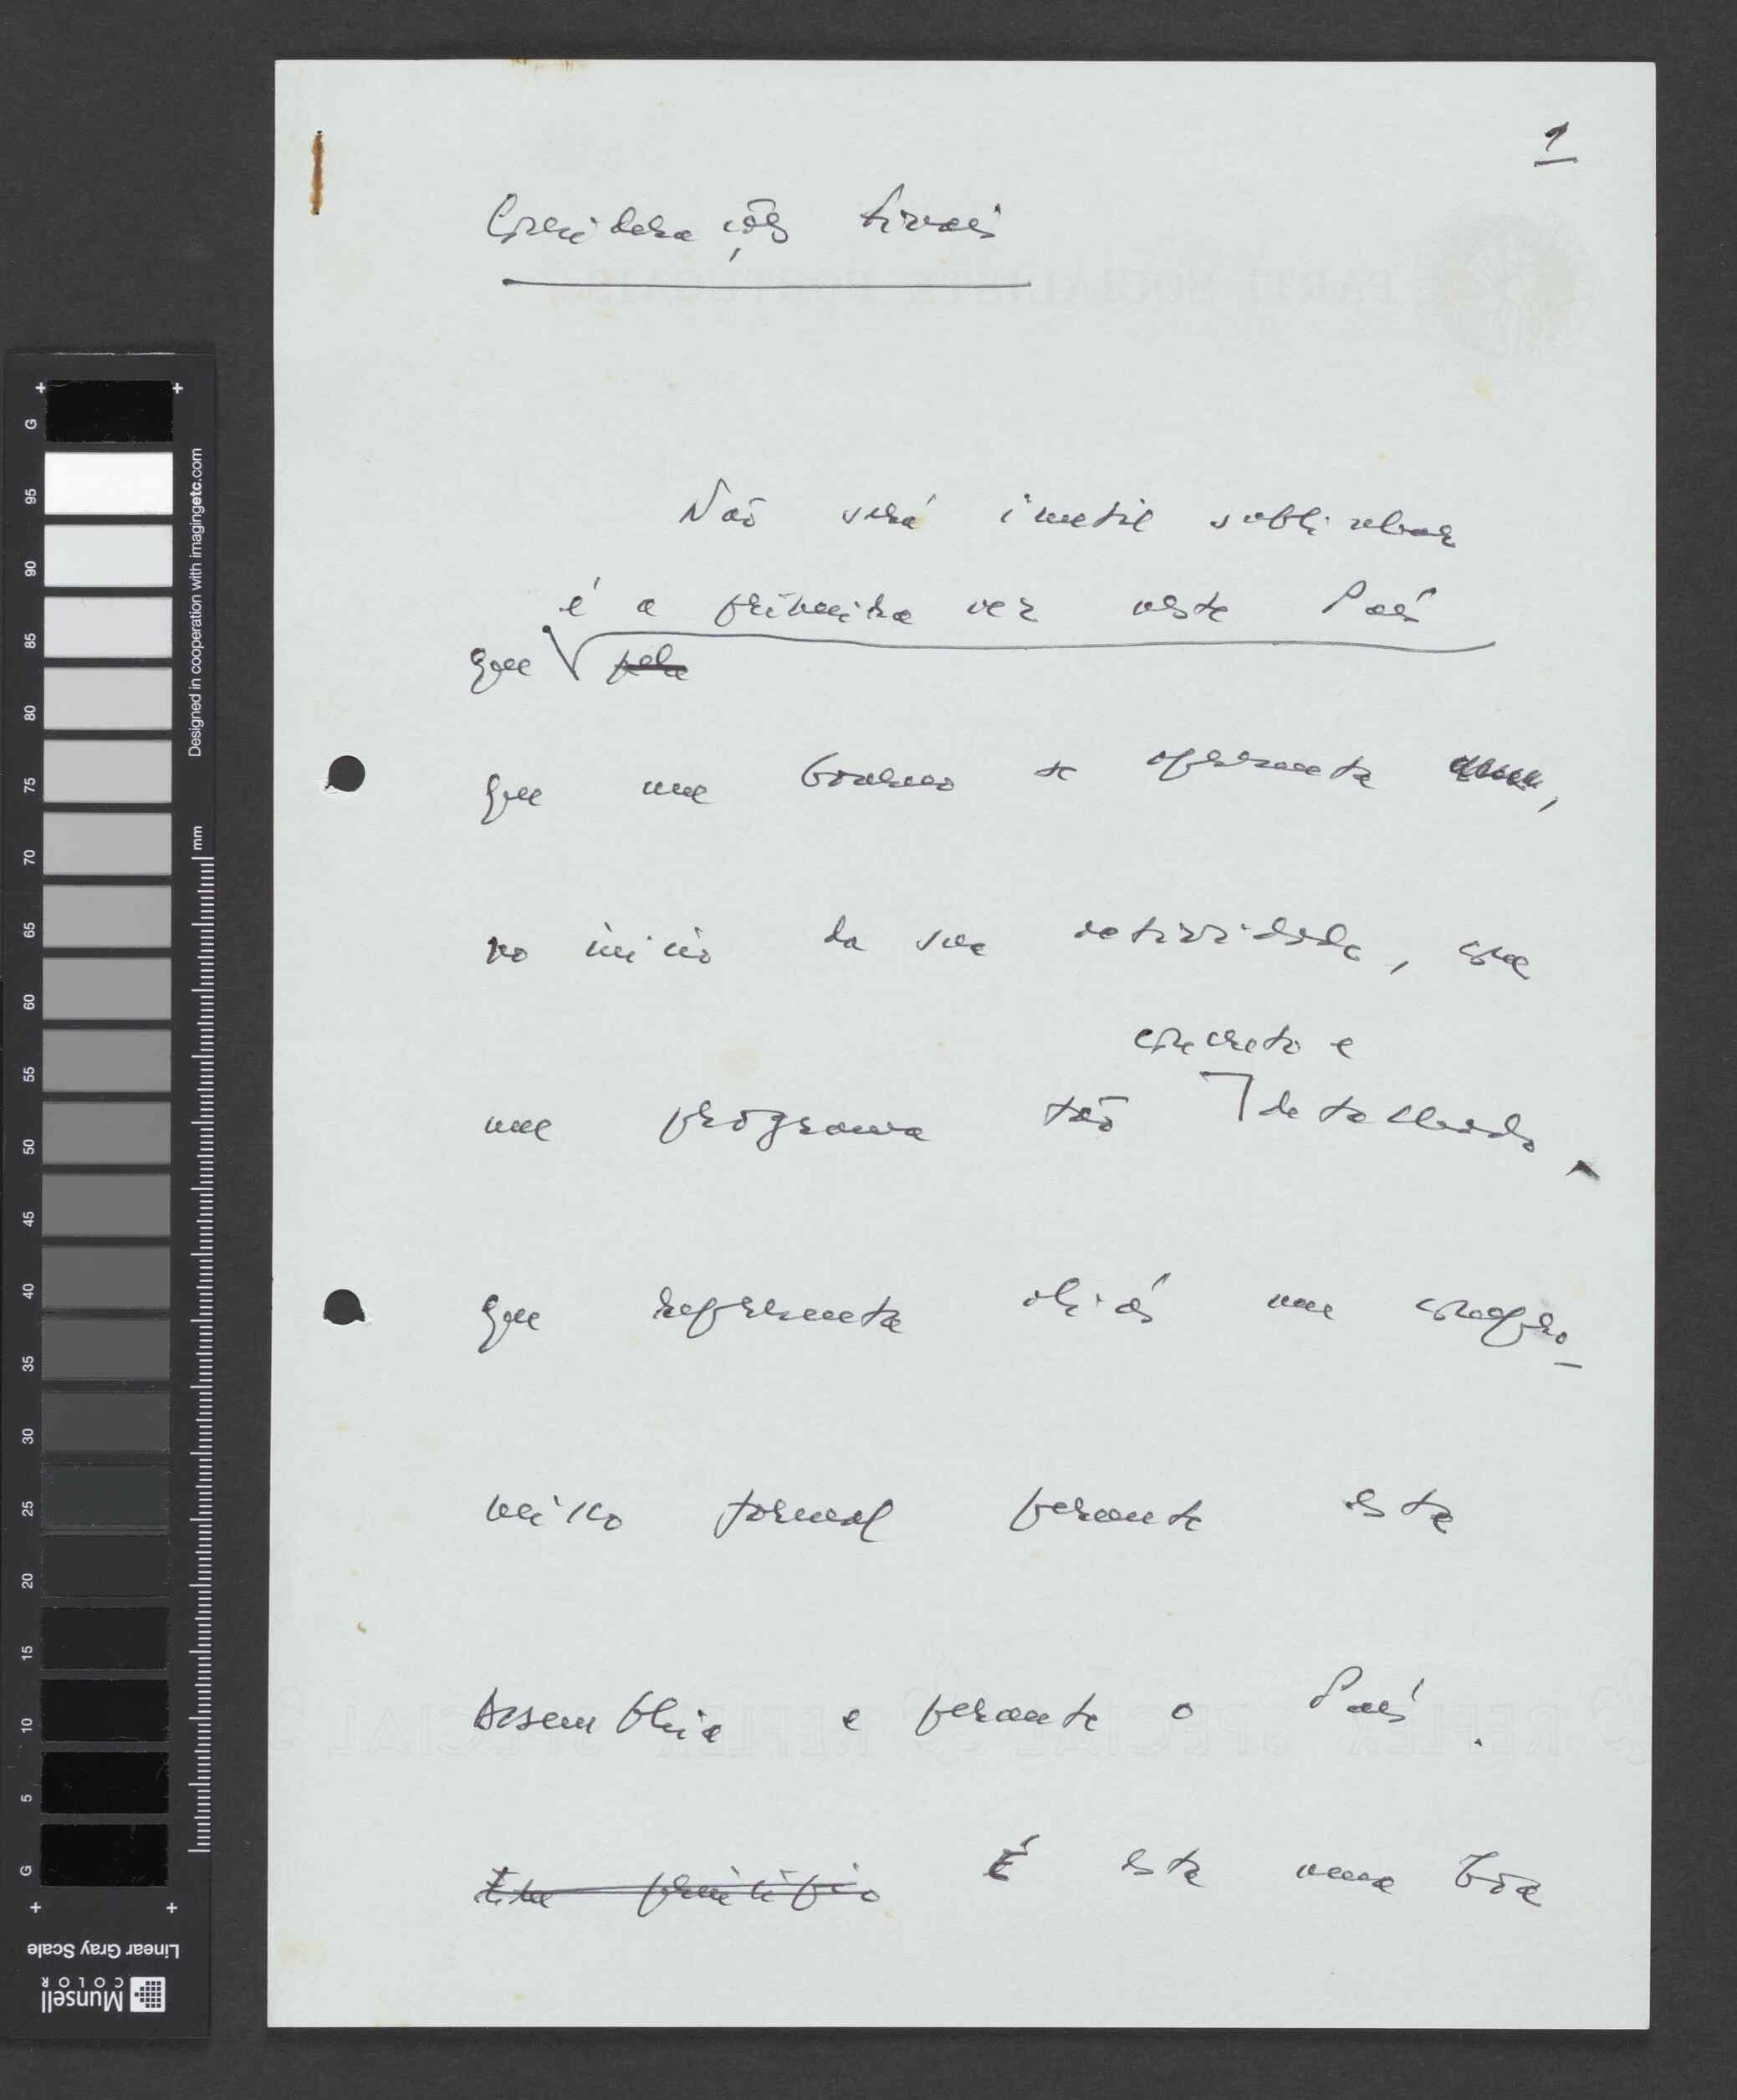 1
Considerações finais
Não será inutil sublinhar
é a primeira vez neste País
que pela
que um Governo se apresenta,
no início da sua actividade, com
concreto e
um programa tão detalhado
que representa aliás um compro-
misso formal perante esta
Assembleia e perante o País.
Em princípio É esta uma boa
PARTI SOCIALISTE PORTUGAIS
REFLEX SPECIAL REFLEX SPECIAL
G 95 90 85 80 75 70 65 60 55 50 45 40 35 30 25 20 15 10 5 G
Designed in cooperation with imagingetc.com
mm
Linear Gray Scale
Munsell
COLOR